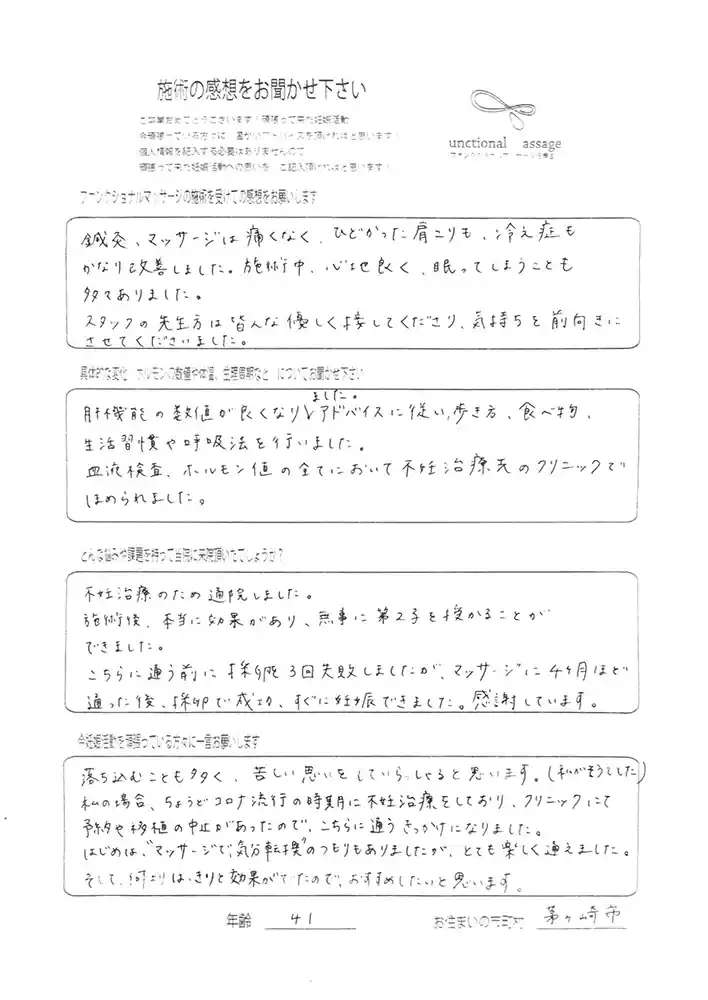 施術の感想をお聞かせ下さい
ご卒業おめでとうございます！頑張って来た妊娠活動
今頑張っている方々に 温かいアドバイスを頂ければと思います！
個人情報を記入する必要はありませんので
頑張って来た妊娠活動への思いを ご記入頂ければと思います！
unctional assage
ファンクショナルマッサージの施術を受けての感想をお願いします
鍼灸、マッサージは痛くなく、ひどかった肩こりも、冷え症も
かなり改善しました。施術中、心地良く、眠ってしまうことも
多々ありました。
スタッフの先生方は皆んな優しく接してくださり、気持ちを前向きに
させてくださいました。
具体的な変化 ホルモンの数値や体温、生理周期など についてお聞かせ下さい
肝機能の数値が良くなりました。アドバイスに従い、歩き方、食べ物、
生活習慣や呼吸法を行いました。
血液検査、ホルモン値の全てにおいて不妊治療先のクリニックで
ほめられました。
どんな悩みや課題を持って当院に来院頂いたでしょうか？
不妊治療のため通院しました。
施術後、本当に効果があり、無事に第2子を授かることが
できました。
こちらに通う前に採卵を3回失敗しましたが、マッサージに4ヶ月ほど
通った後、採卵で成功、すぐに妊娠できました。感謝しています。
今妊娠活動を頑張っている方々に一言お願いします
落ち込むことも多く、苦しい思いをしていらっしゃると思います。(私がそうでした)
私の場合、ちょうどコロナ流行の時期に不妊治療をしており、クリニックにて
予約や移植の中止があったので、こちらに通うきっかけになりました。
はじめは、"マッサージで気分転換"のつもりもありましたが、とても楽しく通えました。
そして、何よりはっきりと効果がでたので、おすすめしたいと思います。
年齢 41 お住まいの市町村 茅ヶ崎市